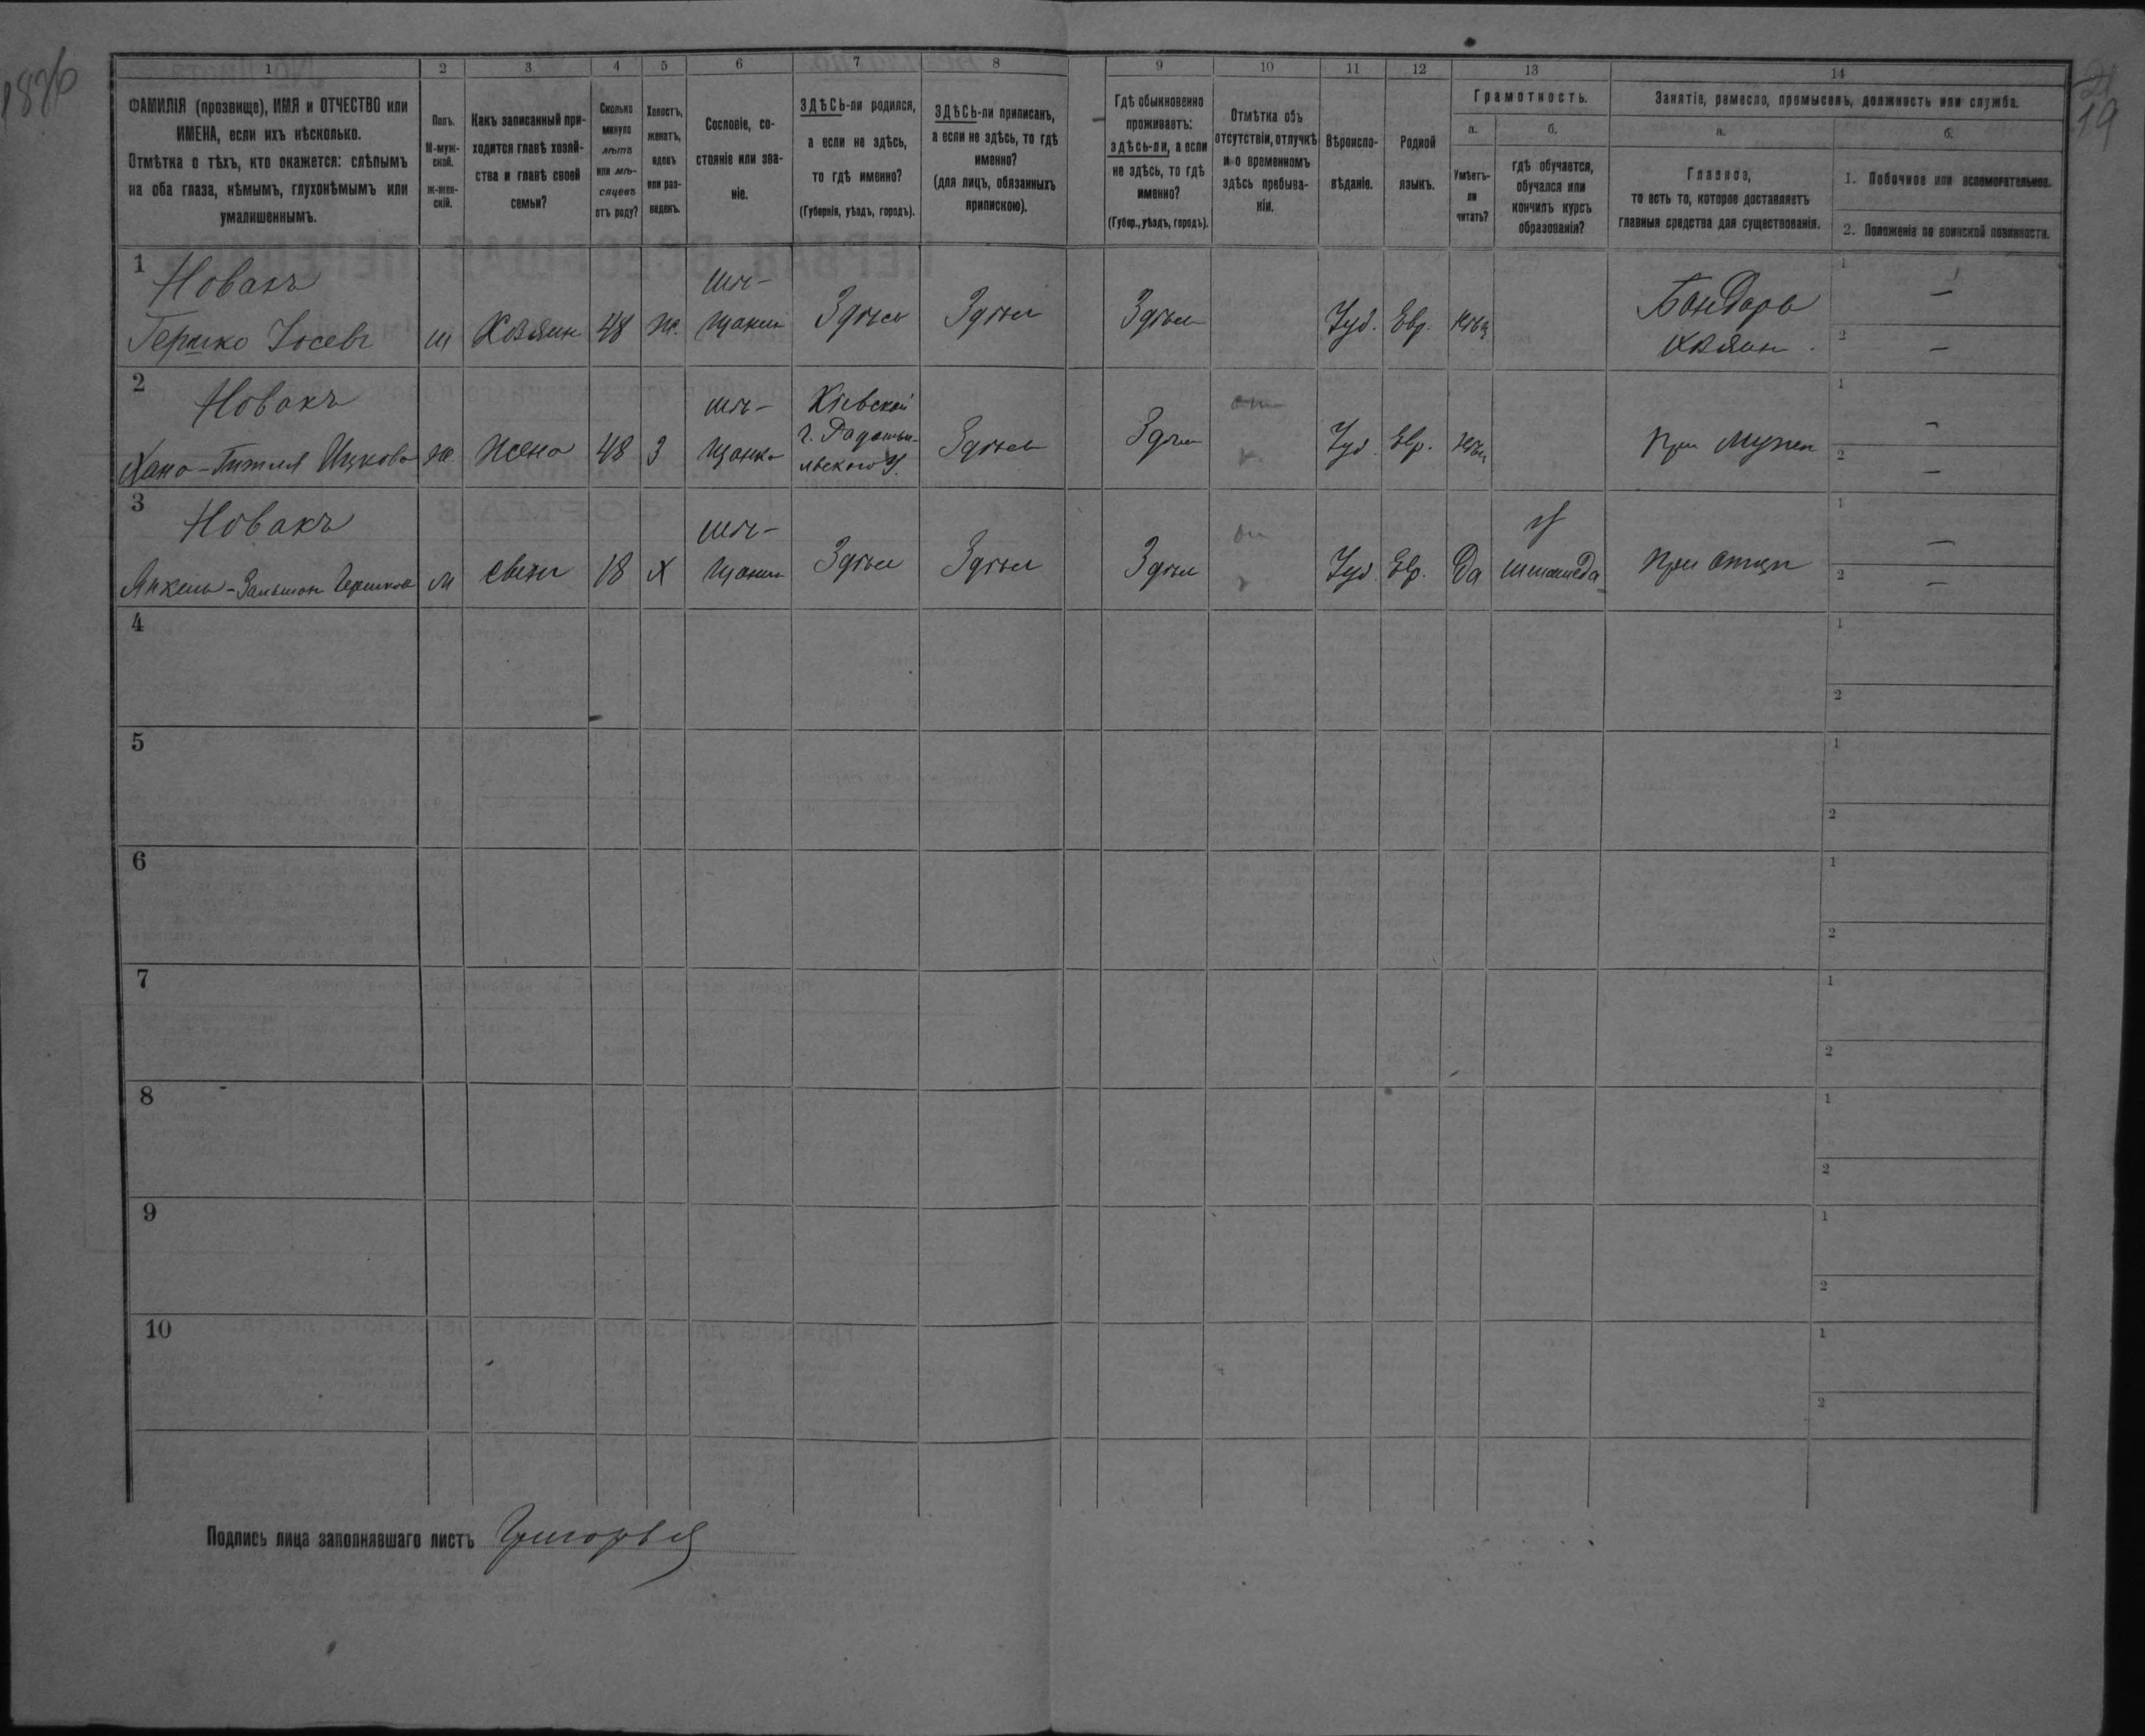 1886
21
19
1 2 3 4 5 6 7 8 9 10 11 12 13 14
ФАМИЛІЯ (прозвище), ИМЯ и ОТЧЕСТВО или
ИМЕНА, если ихъ нѣсколько.
Отмѣтка о тѣхъ, кто окажется: слѣпымъ
на оба глаза, нѣмымъ, глухонѣмымъ или
умалишеннымъ.
Полъ.
М-муж-
ской.
ж-жен-
скій.
Какъ записанный при-
ходится главѣ хозяй-
ства и главѣ своей
семьи?
Сколько
минуло
лѣтъ
или мѣ-
сяцевъ
отъ роду?
Холостъ,
женатъ,
вдовъ
или раз-
веденъ.
Сословіе, со-
стояніе или зва-
ніе.
ЗДѢСЬ-ли родился,
а если не здѣсь,
то гдѣ именно?
(Губернія, уѣздъ, городъ).
ЗДѢСЬ-ли приписанъ,
а если не здѣсь, то гдѣ
именно?
(для лицъ, обязанныхъ
припискою).
Гдѣ обыкновенно
проживаетъ:
здѣсь-ли, а если
не здѣсь, то гдѣ
именно?
(Губер., уѣздъ, городъ).
Отмѣтка объ
отсутствіи, отлучкѣ
и о временномъ
здѣсь пребыва-
ніи.
Вѣроиспо-
вѣданіе.
Родной
языкъ.
Грамотность.
а.
Умѣетъ-
ли
читать?
б.
гдѣ обучается,
обучался или
кончилъ курсъ
образованія?
Занятіе, ремесло, промыселъ, должность или служба.
а.
Главное,
то есть то, которое доставляетъ
главныя средства для существованія.
б.
1. Побочное или вспомогательное.
2. Положеніе по воинской повинности.
1
Новакъ
Гершко Іосевъ
Хозяин
48
Ж.
мѣ-
щанин
Здѣсь
Здѣсь
Здѣсь
Іуд.
Евр.
нѣтъ
Бондарь
хозяин
1 —
2 —
2
Новакъ
Хана-Гитля Ицкова
Ж.
Жена
48
З
мѣ-
щанка
Кіевской
г. Радомы-
льского у.
Здѣсь
Здѣсь
Іуд.
Евр.
нѣтъ
При мужен
1 —
2 —
3
Новакъ
Янкель-Зальман Гершков
М
сынъ
18
Х
мѣ-
щанин
Здѣсь
Здѣсь
Здѣсь
Іуд.
Евр.
Да
При отцѣ
1 —
2 —
4
1
2
5
1
2
6
1
2
7
1
2
8
1
2
9
1
2
10
1
2
Подпись лица заполнявшаго листъ